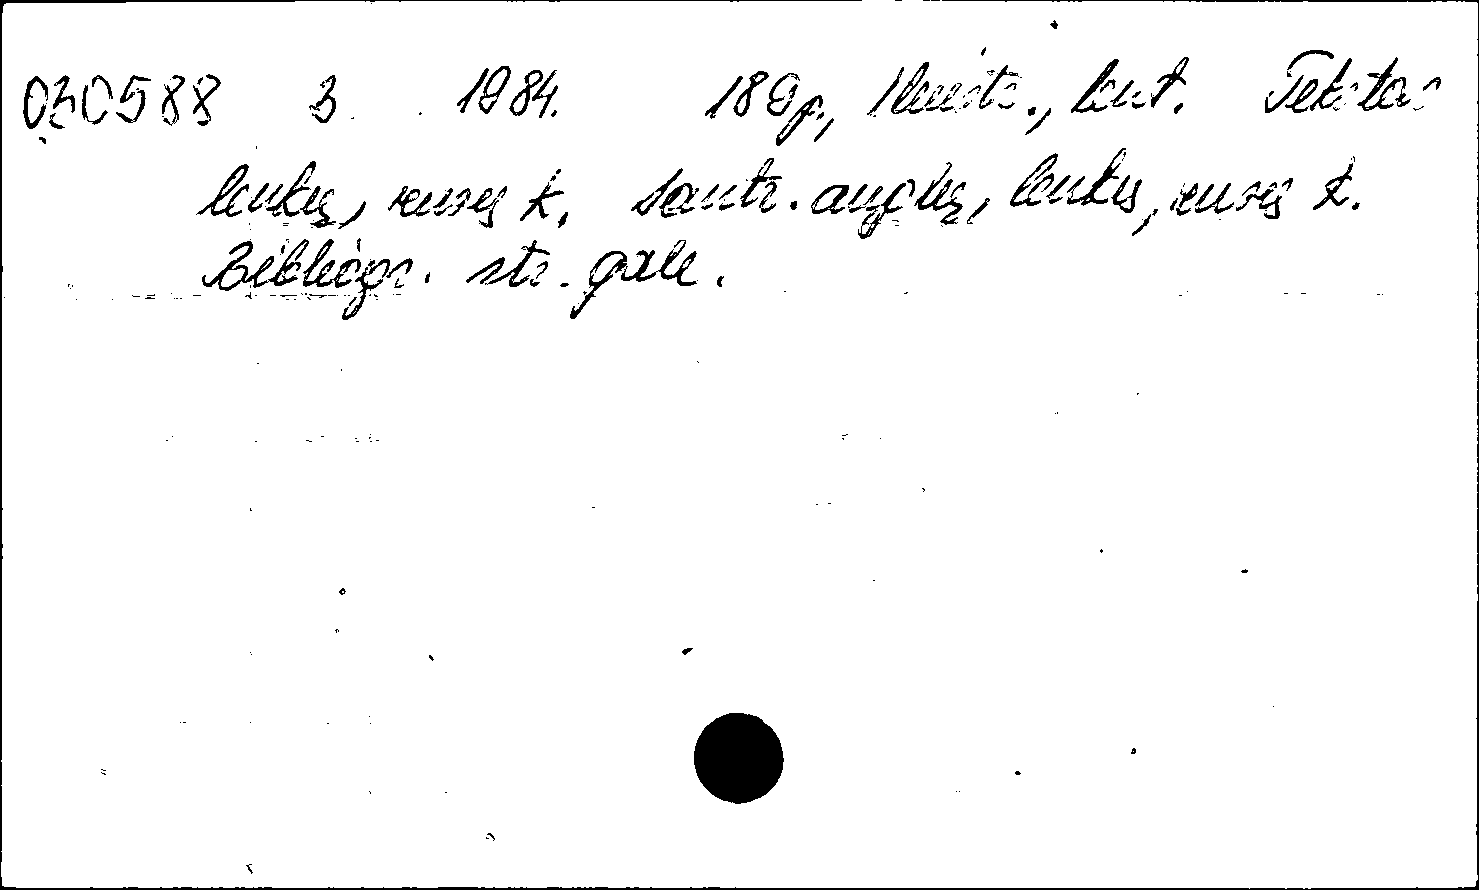 030588 3 1984. 189p., iliustr., lent. Tekstas
lenkų, rusų k. Santr. anglų, lenkų, rusų k.
Bibliogr. str. gale.